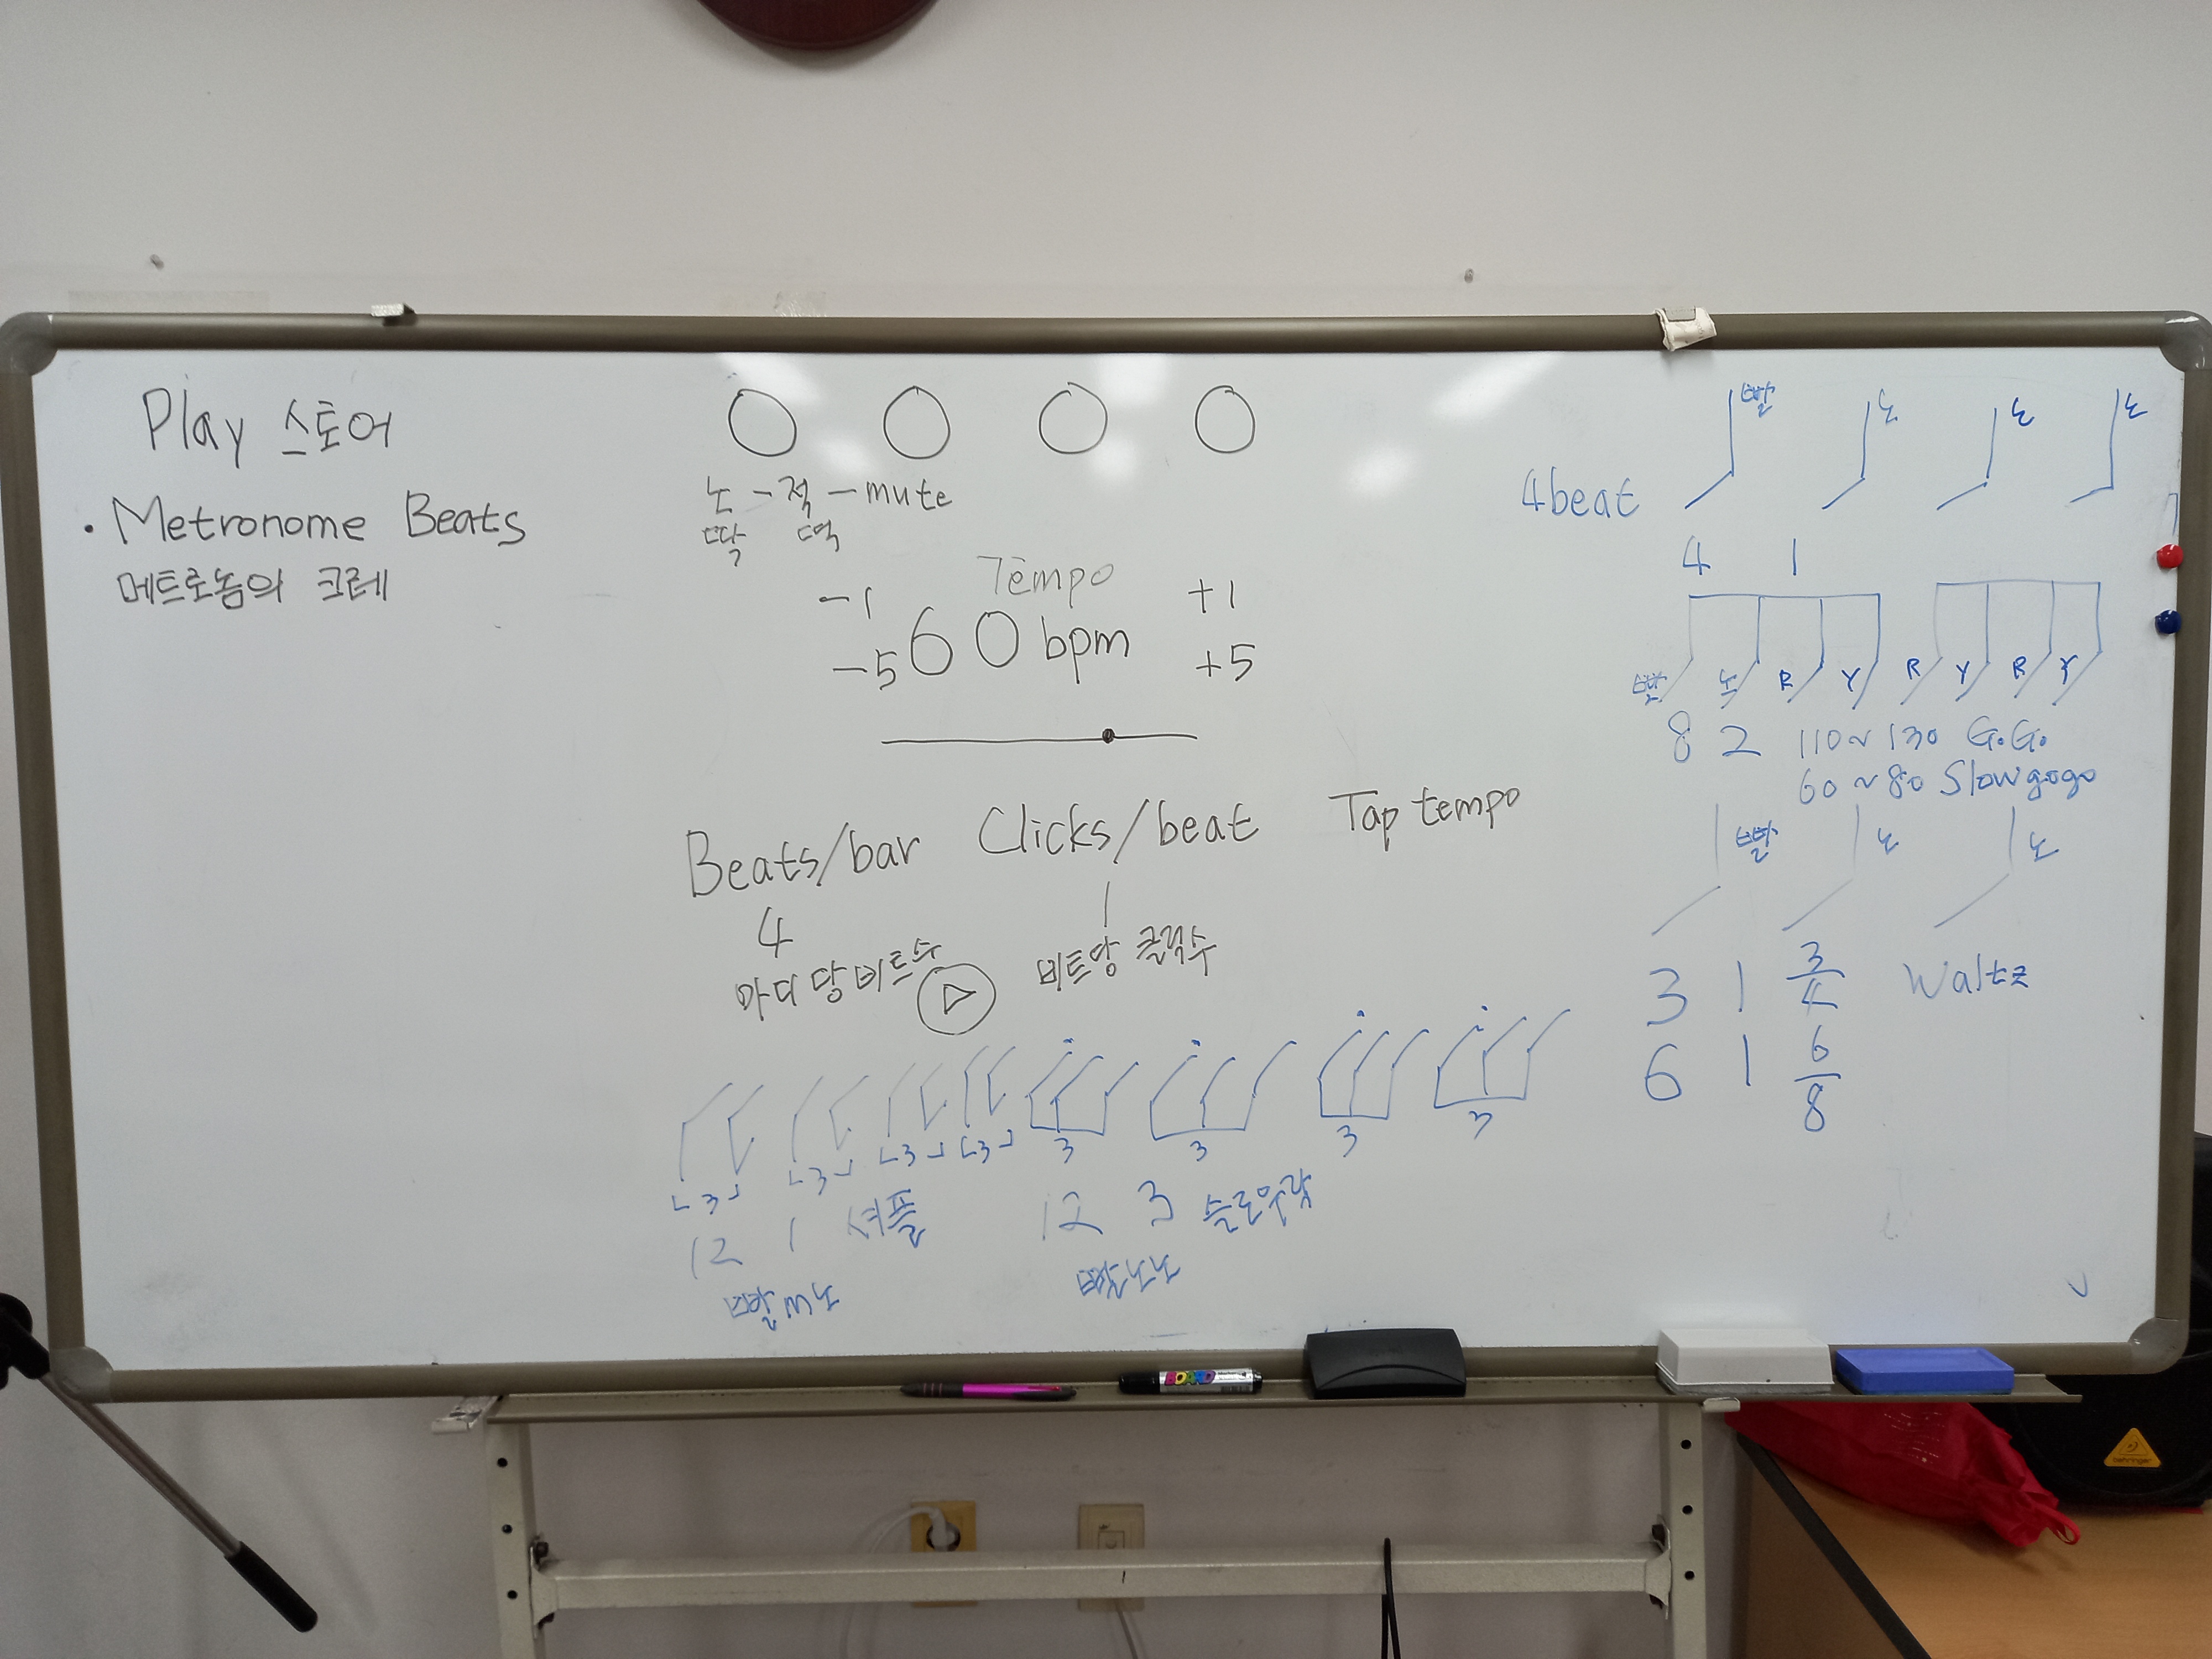 Play 스토어
· Metronome Beats
메트로놈의 크레
노 - 적 - mute
딱 떡
Tempo
-1 +1
60 bpm
-5 +5
Beats/bar Clicks/beat Tap tempo
4 1
마디당 비트수 비트당 클릭수
3 3 3 3 3 3 3 3
12 1 셔플 12 3 슬로우락
빨 m 노 빨노노
빨 노 노 노
4beat
4 1
빨 노 R Y R Y R Y
8 2 110~130 G.G.
60~80 Slow gogo
빨 노 노
3 1 3/4 Waltz
6 1 6/8
BOARD
behringer